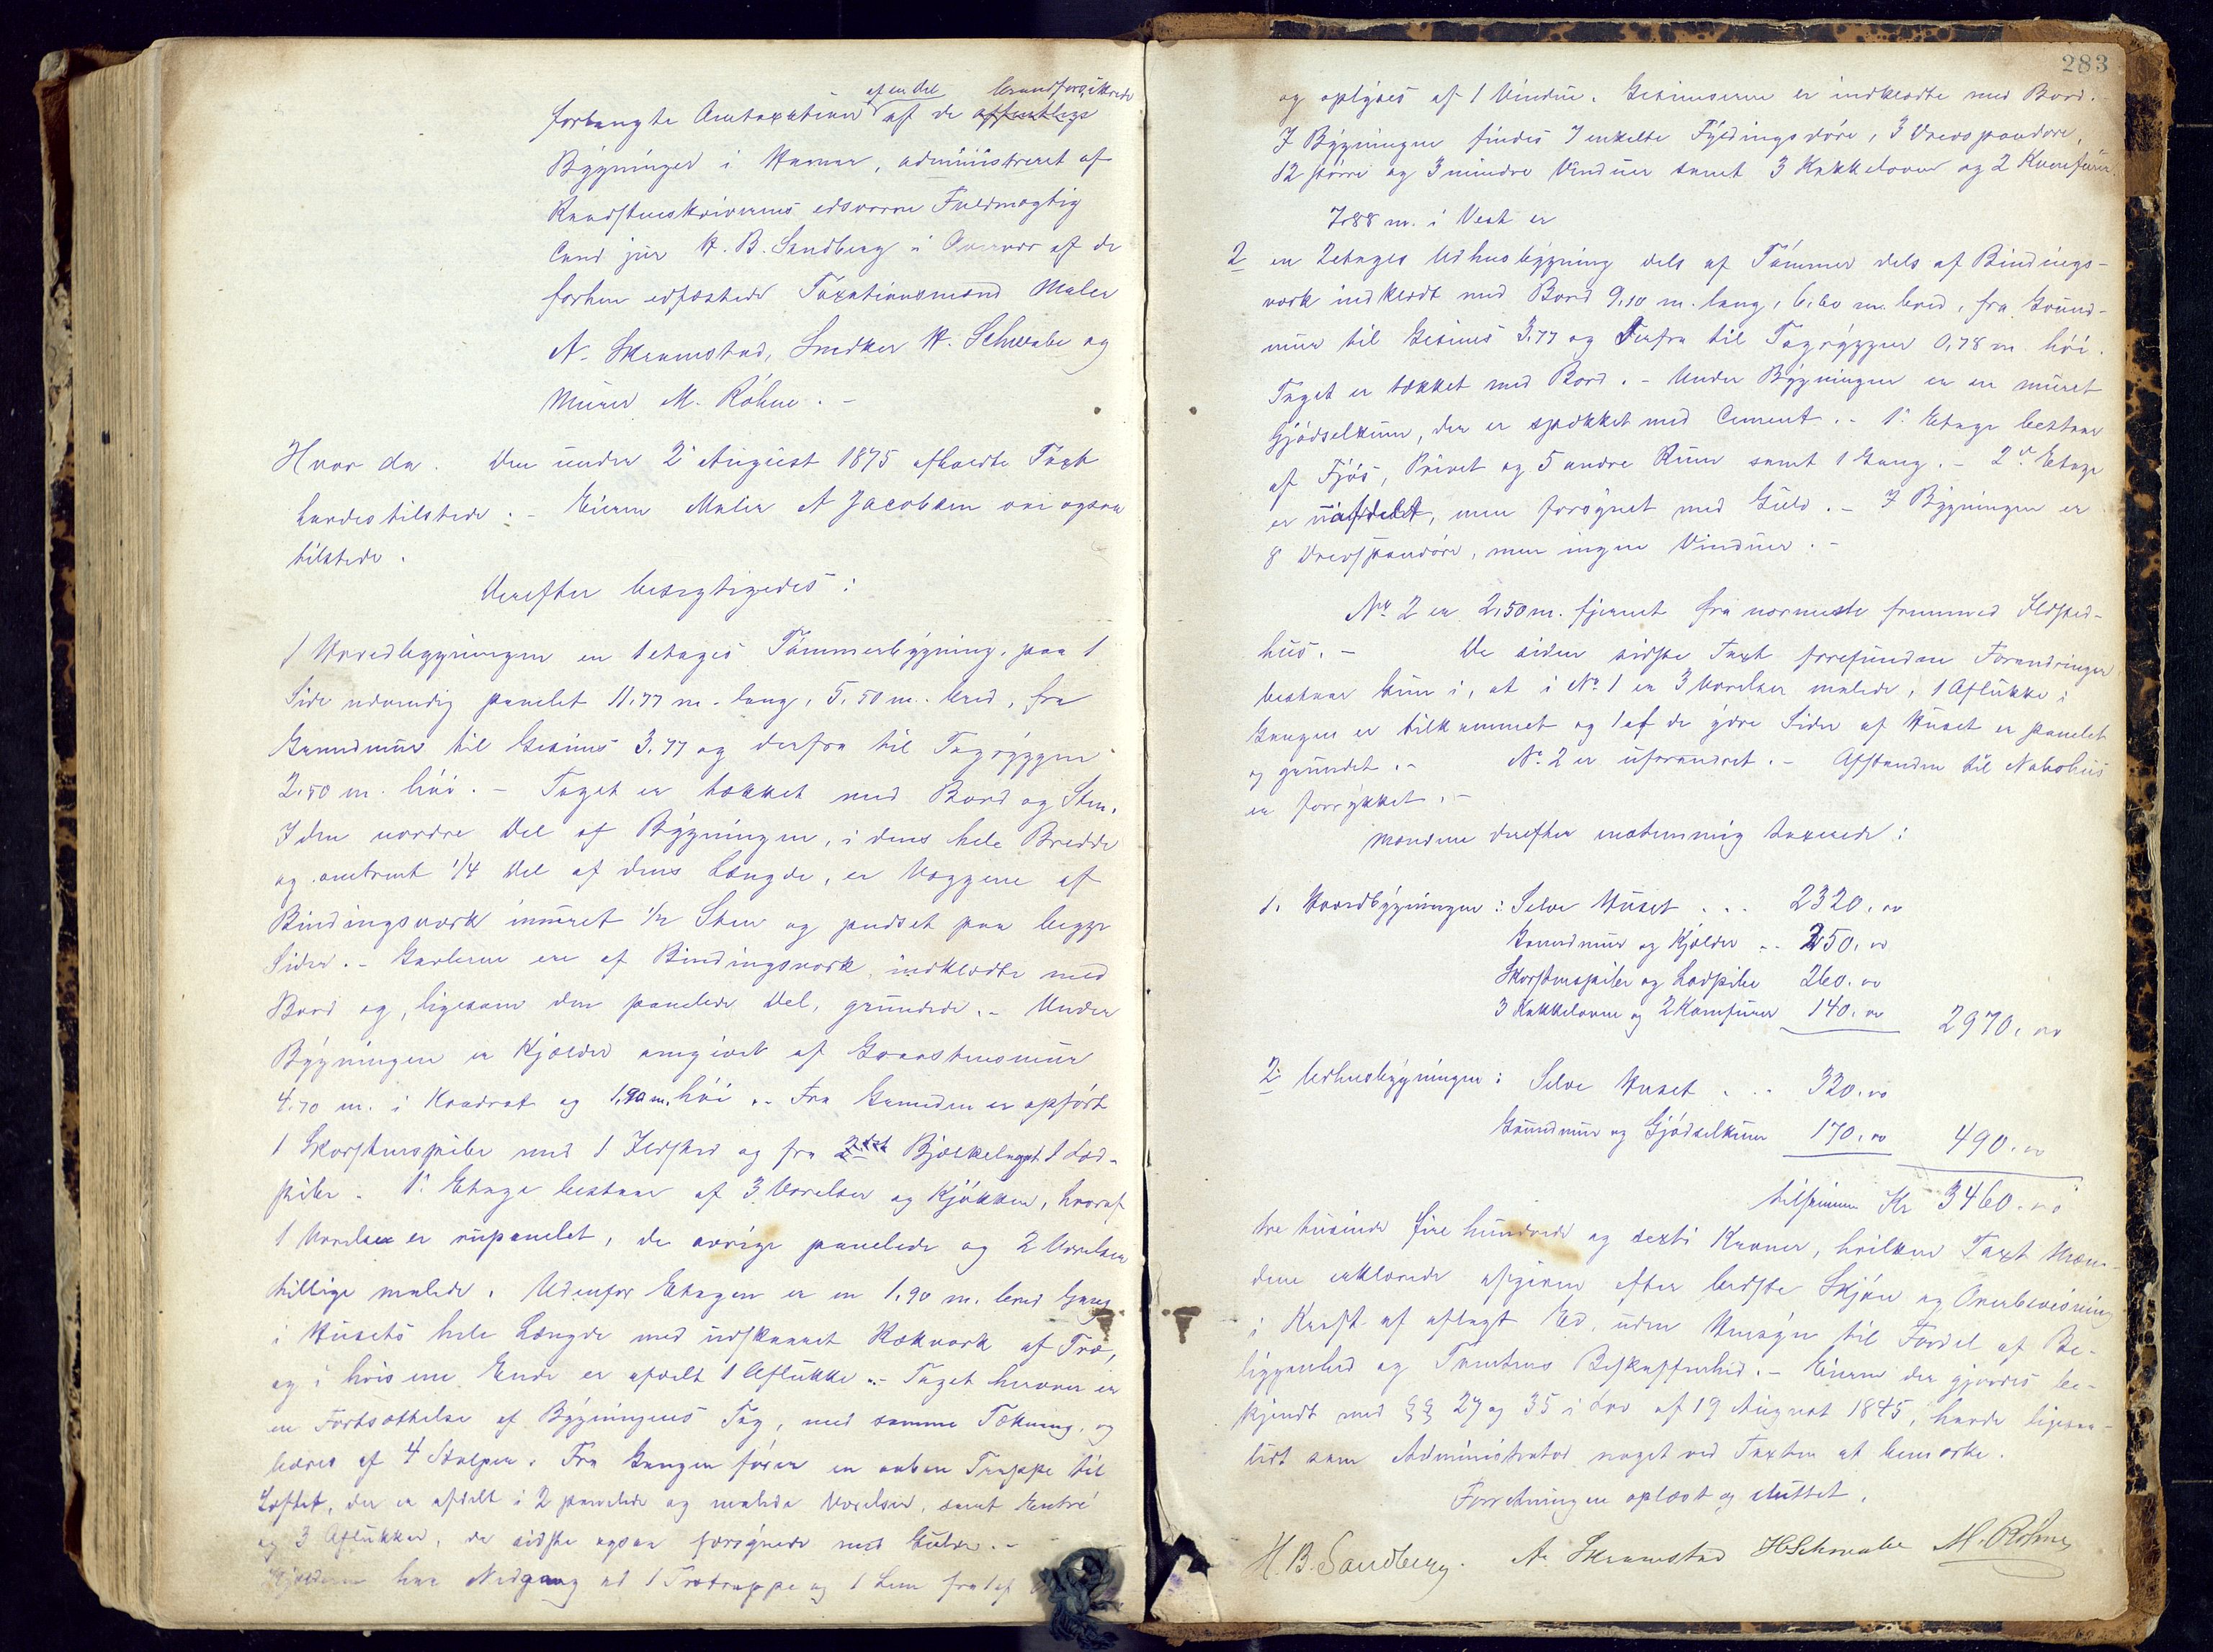 af en del brandforsikrede
forlangte Omtaxation af de offentlige
Bygninger i Hamar, administreret af
Raadstueskriverens edsvorne Fuldmægtig
Cand jur H. B. Sandberg i Overvær af de
forhen edfæstede Taxationsmænd Maler
A. Skramstad, Snedker H. Schwabe og
Murer M. Röhne. -
Hvor da. den under 2 August 1875 afholdte Taxt
havdes tilstede. - Eieren Maler A Jacobsen var ogsaa
tilstede.
Derefter besigtigedes:
1 Vaaredbygningen en 1 etages Tømmerbygning, paa 1
Side udvendig panelet 11.77 m. lang, 5,50 m. bred, fra
Grundmur til Gesims 3.77 og derfra til Tagryggen
2.50 m. høi. - Taget er tækket med Bord og Sten.
I den nordre Del af Bygningen, i dens hele Bredde
og omtrent 1/4 Del af dens Længde, er Væggene af
Bindingsværk inmuret 1/2 Sten og pudset paa begge
Sider. - Gavlerne ere af Bindingsværk, indklædte med
Bord og, ligesom den panelede Del, grundede. - Under
Bygningen er Kjælder omgivet af Graastensmur
4.70 m. i Kvadrat og 1,90 m. høi. - Fra Grunden er opført
1 Skorstenspibe med 1 Ildsted og fra Bjælkelaget 1 Lod-
pibe. 1. Etage bestaar af 3 Værelser og Kjøkken, hvoraf
1 Værelse er upanelet, de øvrige panelede og 2 Værelser
tillige malede. Udenfor Etagen er en 1,90 m. bred Gang
i Husets hele Længde med udskaaret Rækværk af Træ,
og i hvis ene Ende er afdelt 1 Aflukke. - Taget herover er
en Fortsættelse af Bygningens Tag, med samme Tækning, og
bæres af 4 Stolper. Fra Gangen fører en aaben Trappe til
Loftet, der er afdelt i 2 panelede og malede Værelser, samt Entré
og 3 Aflukker, de sidste ogsaa forsynede med Gulve. -
Kjælderen har Nedgang ad 1 Trætrappe og 1 Lem fra 1 af
283
og oplyses af 1 Vindue. Gesimserne er indklædte med Bord.
I Bygningen findes 7 enkelte Fyldingsdøre, 3 Drevspandøre,
12 større og 3 mindre Vinduer samt 3 Kakkelovne og 2 Komfurer.
7,88 m. i Vest er
2 en 2 etages Udhusbygning dels af Tømmer dels af Bindings-
værk indklædt med Bord 9,10 m. lang, 6,60 m. bred, fra Grund-
mur til Gesims 3.77 og derfra til Tagryggen 0,78 m høi.
Taget er tækket med Bord. - Under Bygningen er en muret
Gjødselkum, der er spækket med Cement. - 1. Etage bestaar
af Fjøs, Privet og 5 andre Rum samt 1 Gang. - 2d. Etage
er uafdelt, men forsynet med Gulv. - I Bygningen er
8 Drevspandøre, men ingen Vinduer. -
No 2 er 2,50 m. fjernet fra nærmeste fremmed Ildsted-
hus. - De siden sidste Taxt forefundne Forandringer
bestaar kun i, at i No 1 er 3 Værelser malede, 1 Aflukke i
Gangen er tilkommet og 1 af de ydre Sider af Huset er panelet
og grundet. - No 2 er uforandret. - Afstanden til Nabohus
er forrykket. -
Mændene derefter enstemmig taxerede:
1. Vaaredbygningen: Selve Huset . . . 2320. 00
Grundmur og Kjælder . . 250. 00
Skorstenspiber og Lodpibe 260. 00
3 Kakkelovne og 2 Komfurer 140. 00 2970. 00
2. Udhusbygningen: Selve Huset . . . 320. 00
Grundmur og Gjødselkum 170. 00 490. 00
tilsammen Kr 3460. 00
tre tusinde fire hundrede og sexti Kroner, hvilken Taxt Mæn-
dene erklærede afgiven efter bedste Skjøn og Overbevisning
i Kraft af aflagt Ed, uden Hensyn til Fordel af Be-
liggenhed og Tomtens Beskaffenhed. - Eieren der gjordes be-
kjendt med §§ 27 og 35 i Lov af 19 August 1845, havde ligesaa-
lidt som Administrator noget ved Taxten at bemærke.
Forretningen oplæst og sluttet.
H. B. Sandberg. A. Skramstad H Schwabe M. Röhne